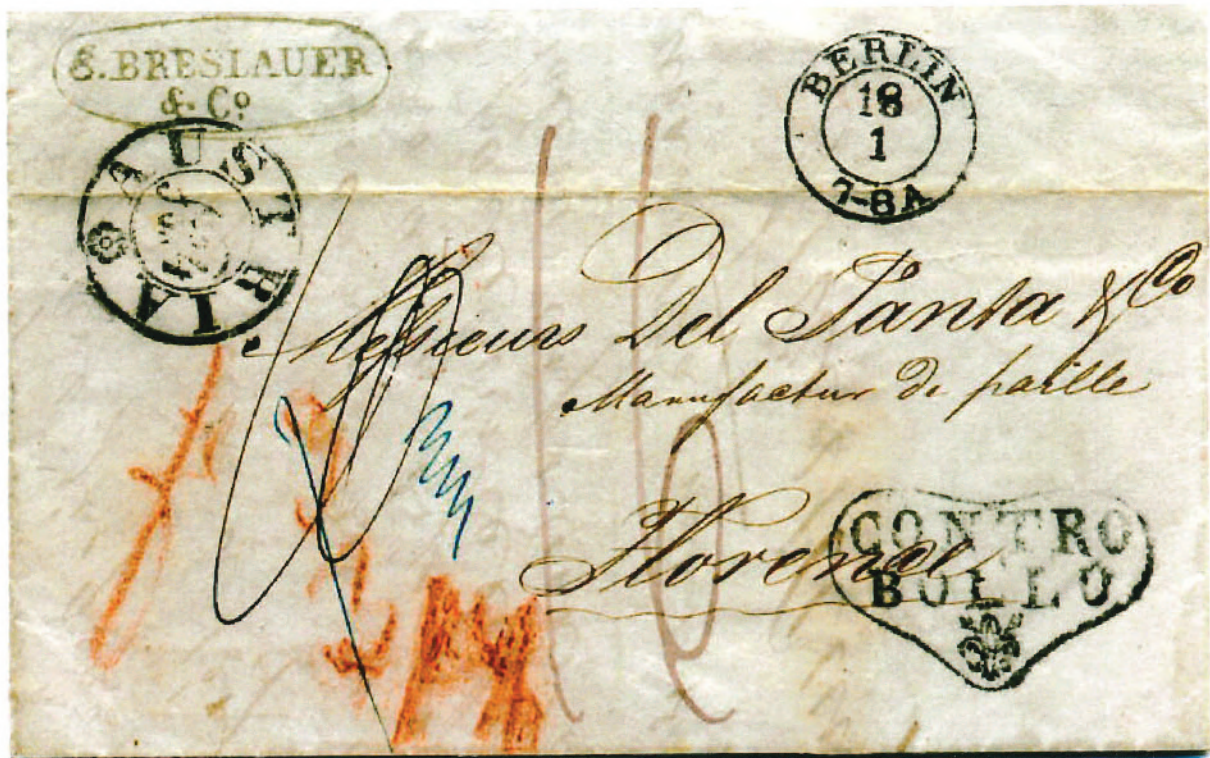 S. BRESLAUER
& Co
BERLIN
18
1
7-8A
AUSTRIA
Messieurs Del Santa & Co
Manufactur de paille
Florence
CONTRO
BOLLO